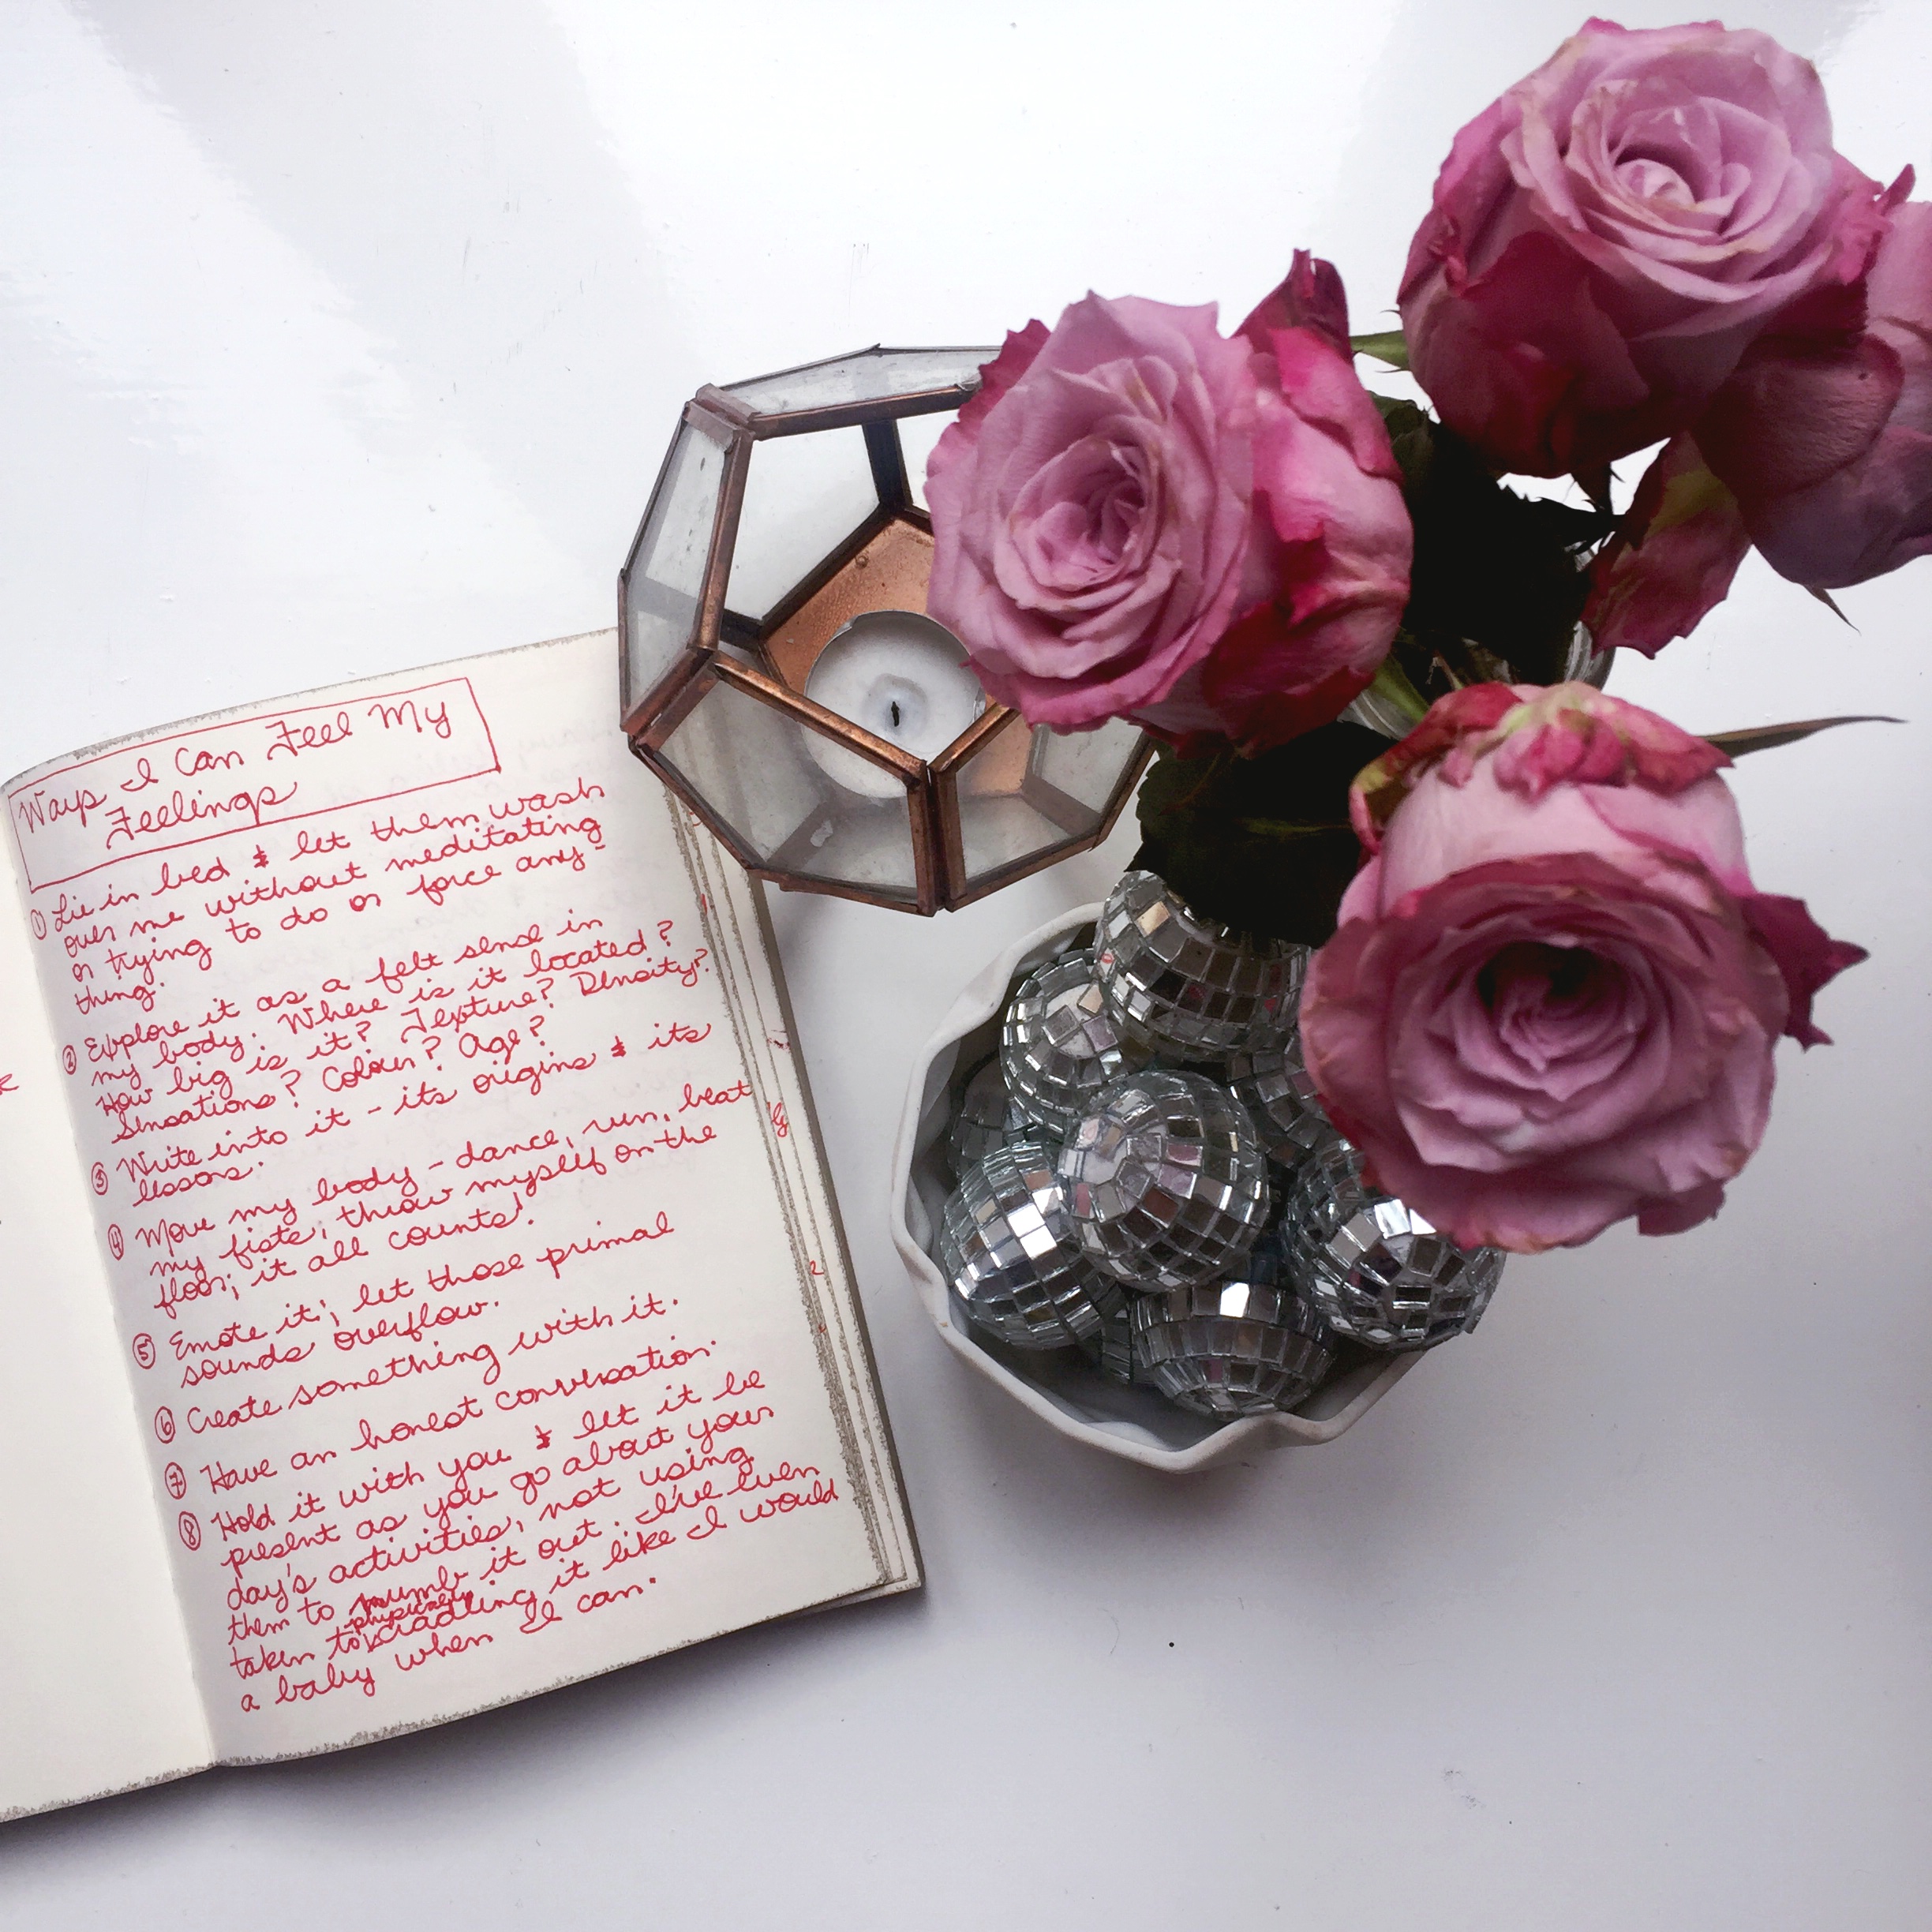 Ways I Can Feel My
Feelings
① Lie in bed & let them wash
over me without meditating
or trying to do or force any-
thing.
② Explore it as a felt sense in
my body. Where is it located?
How big is it? Texture? Density?
Sensations? Colour? Age?
③ Write into it - its origins & its
lessons.
④ Move my body - dance, run, beat
my fists, throw myself on the
floor; it all counts!
⑤ Emote it; let those primal
sounds overflow.
⑥ Create something with it.
⑦ Have an honest conversation.
⑧ Hold it with you & let it be
present as you go about your
day's activities, not using
them to numb it out. I've even
taken to physically cradling it like I would
a baby when I can.